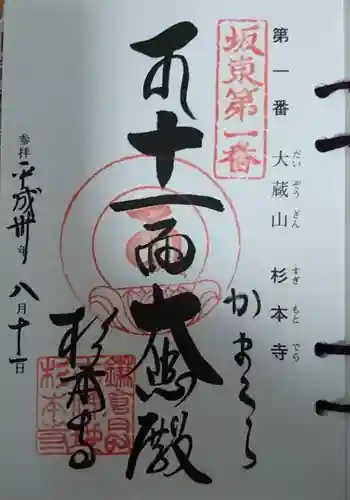 第一番 大蔵山 杉本寺
だいぞうざん すぎもとでら
坂東第一番
かまくら
十一面大悲殿
杉本寺
参拝 平成卅年 八月十一日